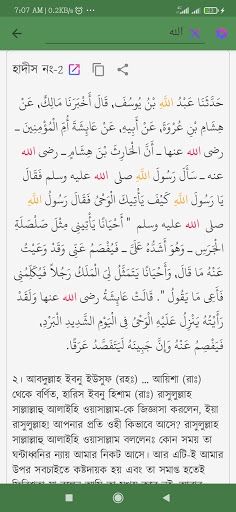 7:07 AM | 0.2KB/s
الله
হাদীস নং-2
حَدَّثَنَا عَبْدُ اللَّهِ بْنُ يُوسُفَ، قَالَ أَخْبَرَنَا مَالِكٌ، عَنْ
هِشَامِ بْنِ عُرْوَةَ، عَنْ أَبِيهِ، عَنْ عَائِشَةَ أُمِّ الْمُؤْمِنِينَ ـ
رضى الله عنها ـ أَنَّ الْحَارِثَ بْنَ هِشَامٍ ـ رضى الله
عنه ـ سَأَلَ رَسُولَ اللَّهِ صلى الله عليه وسلم فَقَالَ
يَا رَسُولَ اللَّهِ كَيْفَ يَأْتِيكَ الْوَحْىُ فَقَالَ رَسُولُ اللَّهِ
صلى الله عليه وسلم " أَحْيَانًا يَأْتِينِي مِثْلَ صَلْصَلَةِ
الْجَرَسِ ـ وَهُوَ أَشَدُّهُ عَلَىَّ ـ فَيُفْصَمُ عَنِّي وَقَدْ وَعَيْتُ
عَنْهُ مَا قَالَ، وَأَحْيَانًا يَتَمَثَّلُ لِيَ الْمَلَكُ رَجُلاً فَيُكَلِّمُنِي
فَأَعِي مَا يَقُولُ ". قَالَتْ عَائِشَةُ رضى الله عنها وَلَقَدْ
رَأَيْتُهُ يَنْزِلُ عَلَيْهِ الْوَحْىُ فِي الْيَوْمِ الشَّدِيدِ الْبَرْدِ،
فَيَفْصِمُ عَنْهُ وَإِنَّ جَبِينَهُ لَيَتَفَصَّدُ عَرَقًا.
২। আবদুল্লাহ ইবনু ইউসুফ (রহঃ) ... আয়িশা (রাঃ)
থেকে বর্ণিত, হারিস ইবনু হিশাম (রাঃ) রাসূলুল্লাহ
সাল্লাল্লাহু আলাইহি ওয়াসাল্লাম-কে জিজ্ঞাসা করলেন, ইয়া
রাসূলুল্লাহ! আপনার প্রতি ওহী কিভাবে আসে? রাসূলুল্লাহ
সাল্লাল্লাহু আলাইহি ওয়াসাল্লাম বললেনঃ কোন সময় তা
ঘন্টাধ্বনির ন্যায় আমার নিকট আসে। আর এটি-ই আমার
উপর সবচাইতে কষ্টদায়ক হয় এবং তা সমাপ্ত হতেই